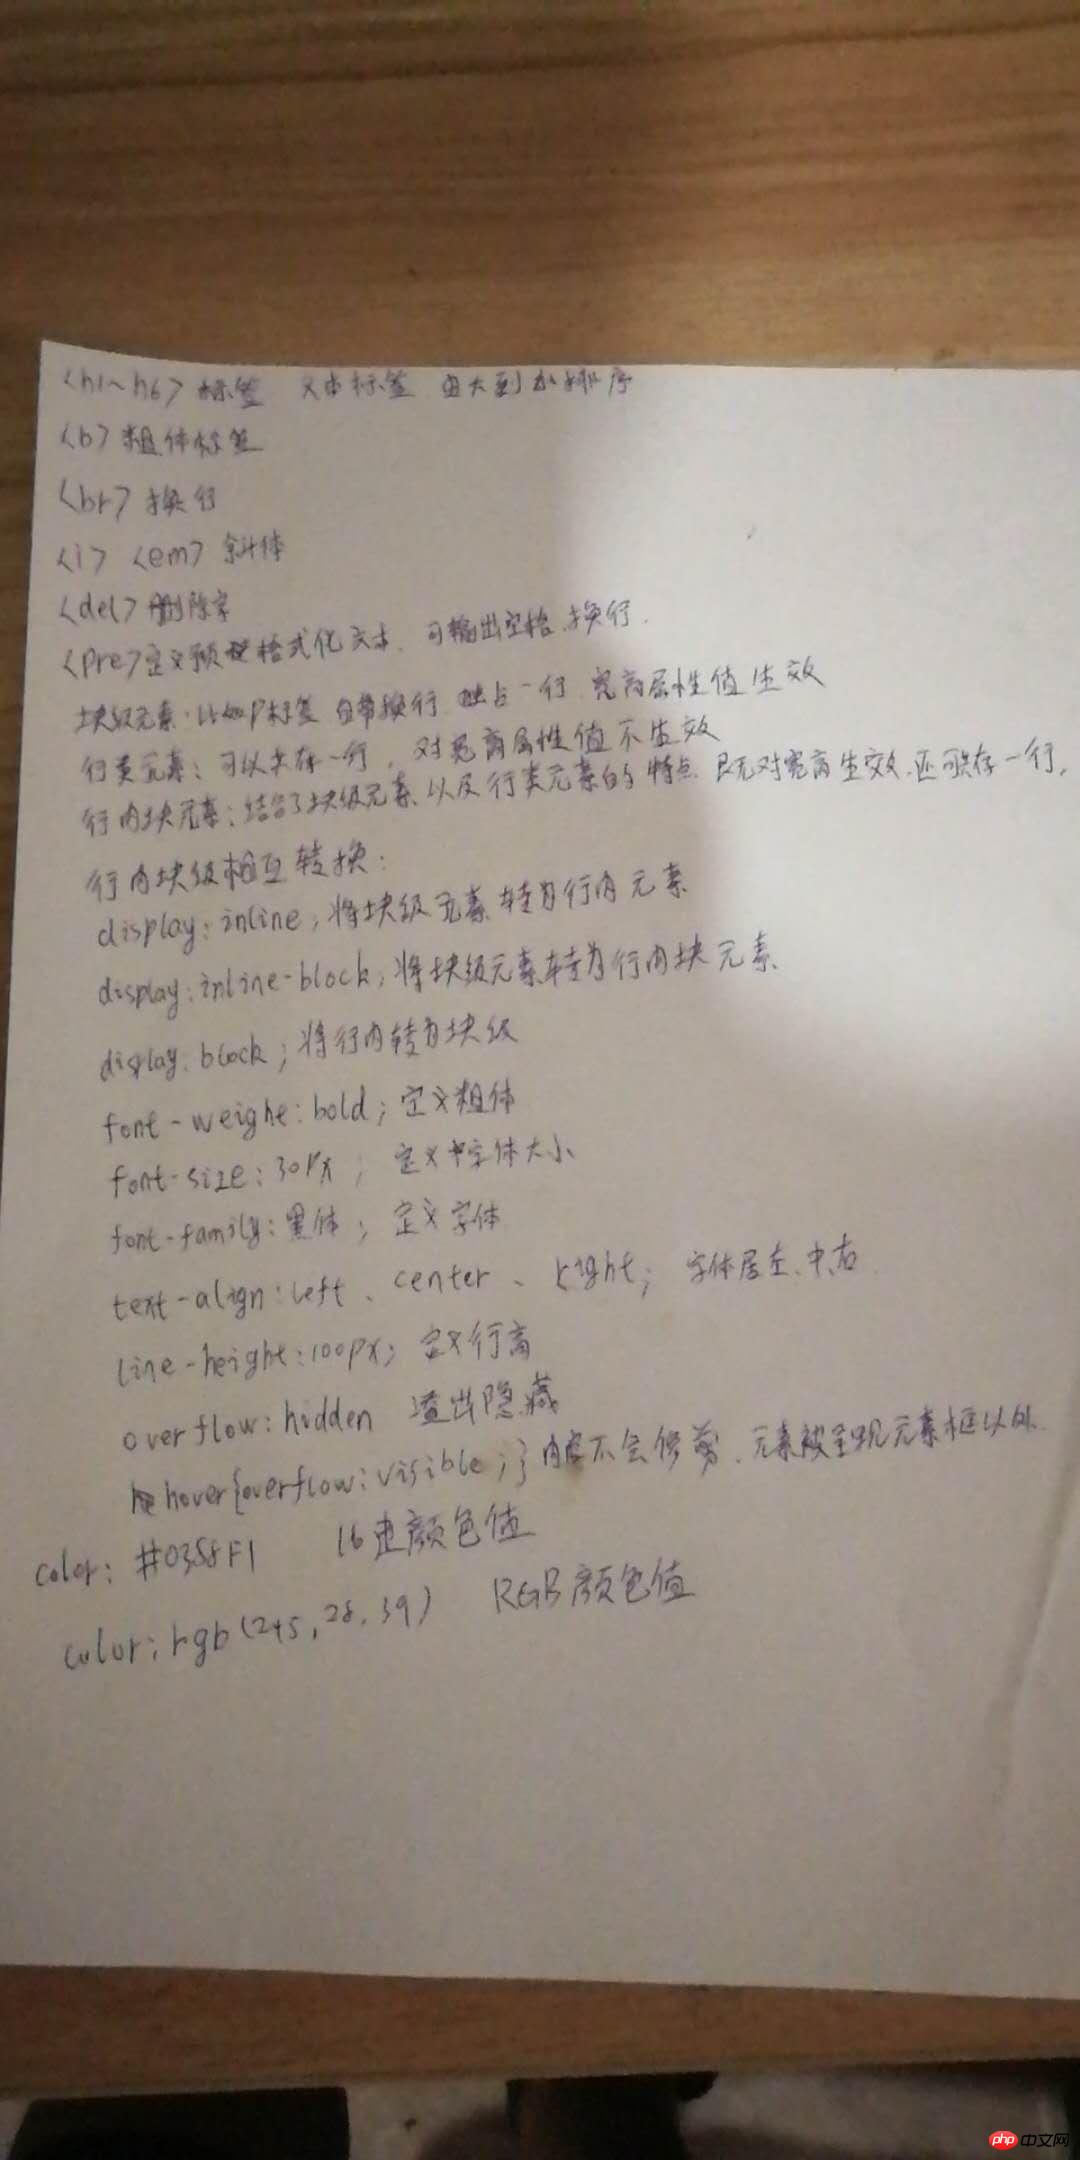 <h1~h6> 标签 文本标签 由大到小排序
<b> 粗体标签
<br> 换行
<i> <em> 斜体
<del> 删除字
<pre> 定义预格式化文本、可输出空格、换行.
块级元素:比如P标签 自带换行 独占一行 宽高属性值生效
行类元素:可以共存一行,对宽高属性值不生效
行内块元素:结合了块级元素以及行类元素的特点 既对宽高生效、还可共存一行,
行内块级相互转换:
display: inline;将块级元素转为行内元素
display: inline-block;将块级元素转为行内块元素
display: block;将行内转为块级
font-weight: bold;定义粗体
font-size: 30px; 定义字体大小
font-family: 黑体; 定义字体
text-align: left、center、right; 字体居左、中、右
line-height: 100px; 定义行高
overflow: hidden 溢出隐藏
hover{overflow: visible;}内容不会修剪、元素被呈现元素框以外.
color: #0388F1 16进颜色值
color: rgb(245,28,39) RGB颜色值
php 中文网